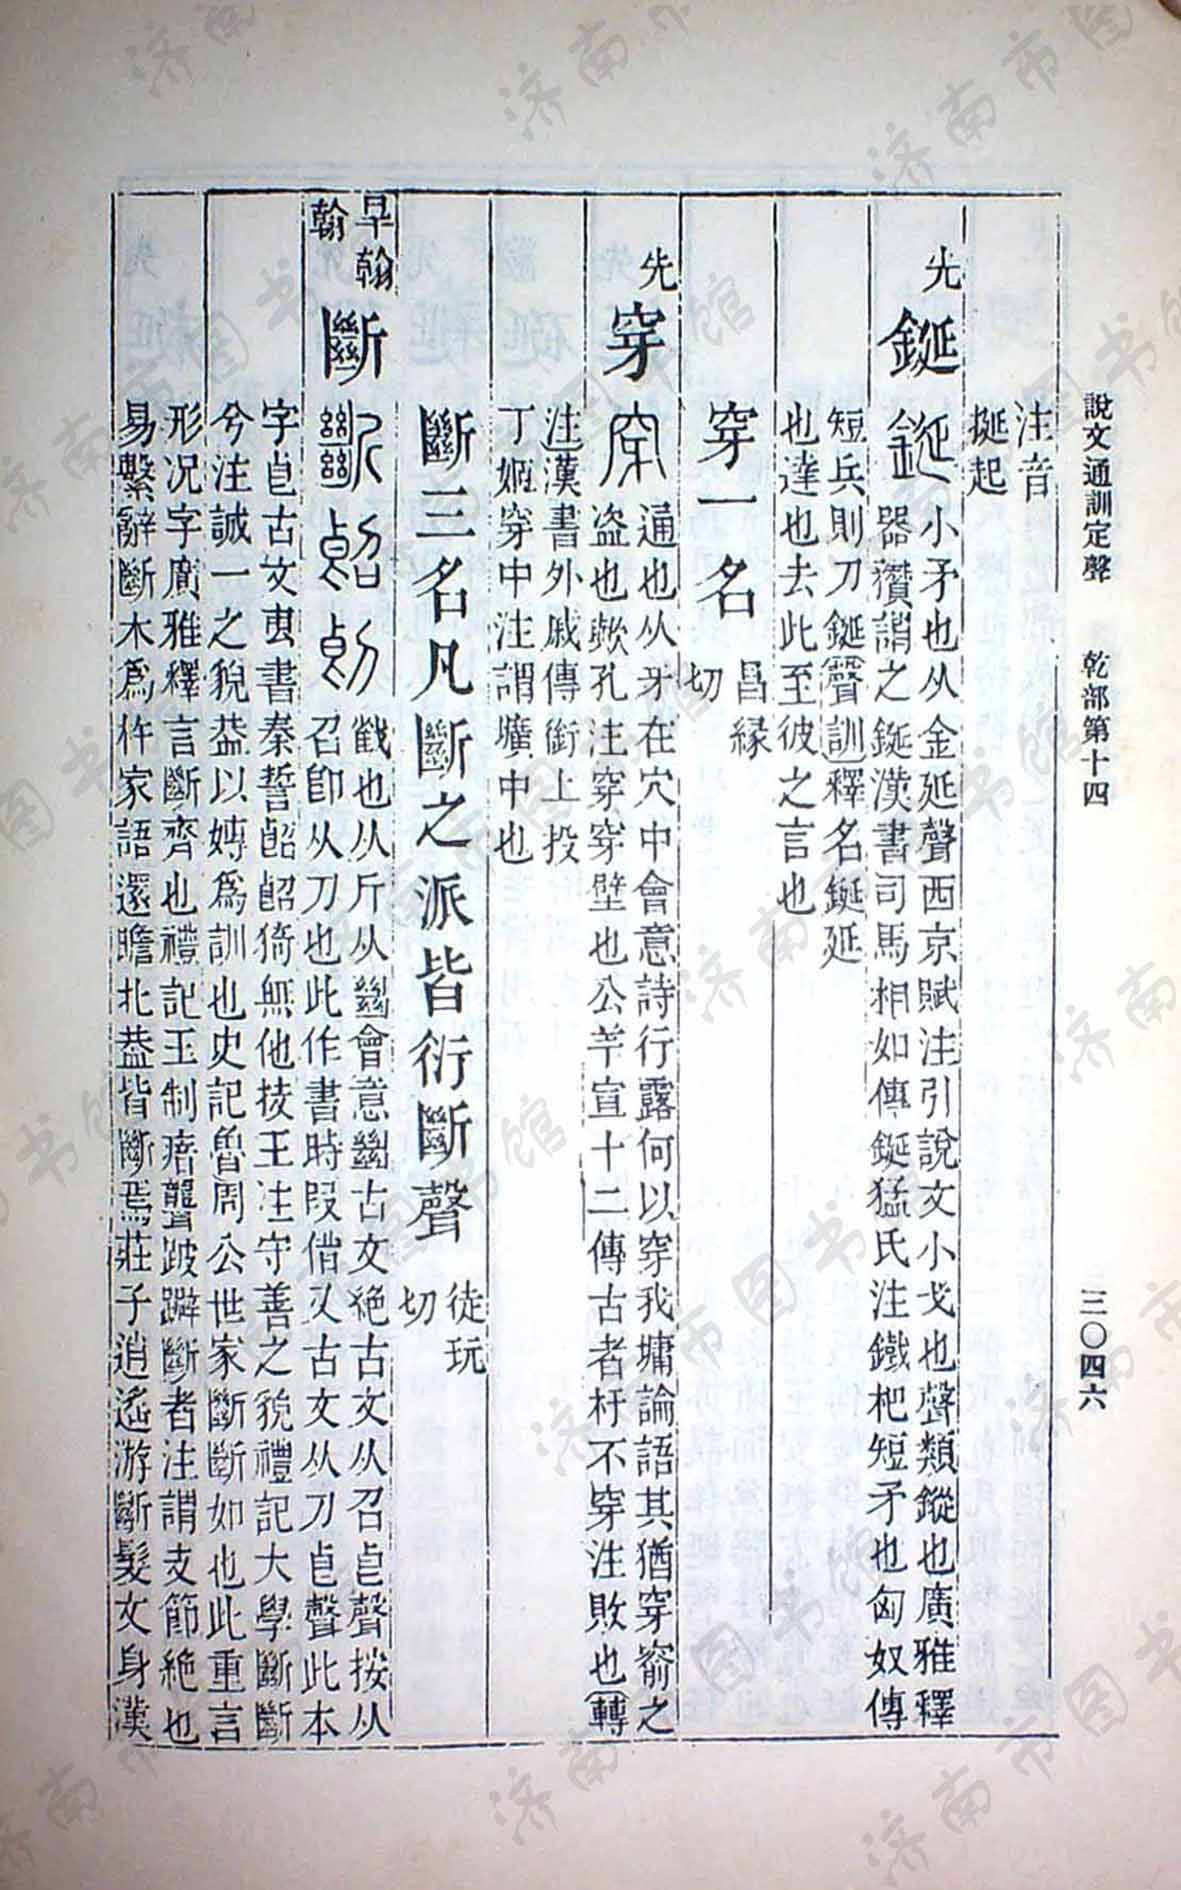 說文通訓定聲　乾部第十四　三〇四六
注音
挻起
先
鋋
小矛也从金延聲西京賦注引說文小戈也聲類鏦也廣雅釋
器穳謂之鋋漢書司馬相如傳鋋猛氏注鐵杷短矛也匈奴傳
短兵則刀鋋聲訓釋名鋋延
也達也去此至彼之言也
穿一名
昌緣
切
先
穿
通也从牙在穴中會意詩行露何以穿我墉論語其猶穿窬之
盜也歟孔注穿穿壁也公羊宣十二傳古者杅不穿注敗也轉
注漢書外戚傳銜土投
丁姬穿中注謂壙中也
斷三名凡斷之派皆衍斷聲
徒玩
切
旱翰
翰
斷
㡭也从斤从𢇍會意𢇍古文絕古文从召𠧢聲按从
召卽从刀也此作書時叚借又古文从刀𠧢聲此本
字𠧢古文叀書秦誓䛒䛒猗無他技王注守善之貌禮記大學斷斷
兮注誠一之貌葢以嫥爲訓也史記魯周公世家斷斷如也此重言
形況字廣雅釋言斷齊也禮記王制瘖聾跛躃斷者注謂支節絕也
易繫辭斷木爲杵家語還瞻北葢皆斷焉莊子逍遙游斷髮文身漢